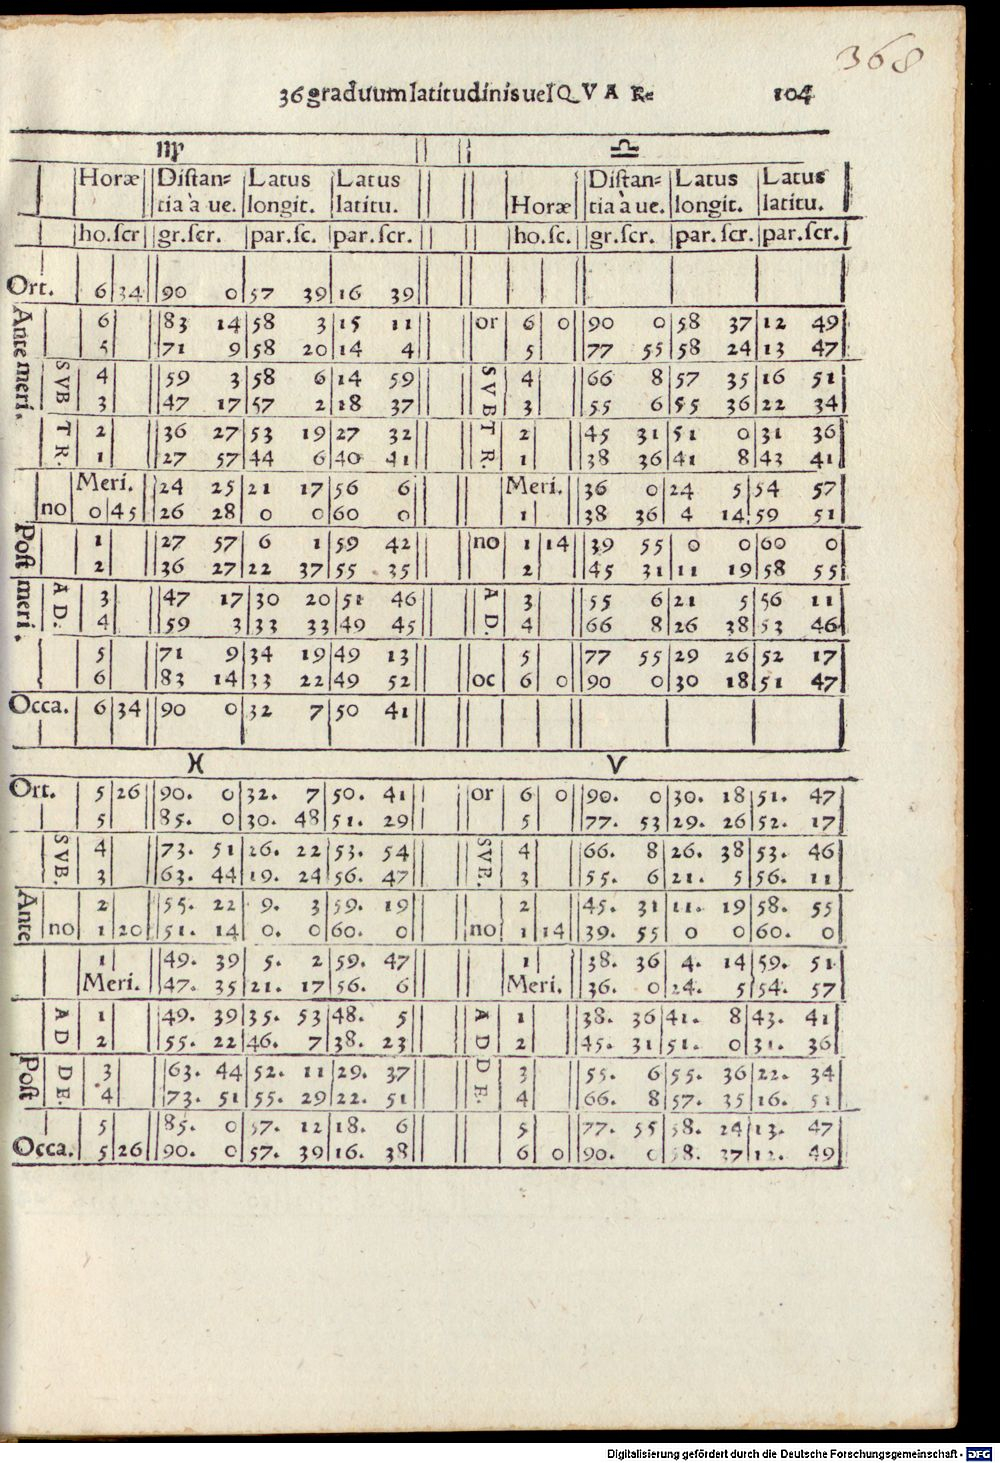 368
36 graduum latitudinis uel QVAR= 104
♍ ♎
Horæ Distan= Latus Latus Distan= Latus Latus
tia à ue. longit. latitu. Horæ tia à ue. longit. latitu.
ho.scr gr.scr. par.sc. par.scr. ho.sc. gr.scr. par.scr. par.scr.
Ort. 6 34 90 0 57 39 16 39
Ante meri. 6 83 14 58 3 15 11 or 6 0 90 0 58 37 12 49
5 71 9 58 20 14 4 5 77 55 58 24 13 47
SVB 4 59 3 58 6 14 59 SVB 4 66 8 57 35 16 51
3 47 17 57 2 18 37 3 55 6 55 36 22 34
TR. 2 36 27 53 19 27 32 TR. 2 45 31 51 0 31 36
1 27 57 44 6 40 41 1 38 36 41 8 43 41
Meri. 24 25 21 17 56 6 Meri. 36 0 24 5 54 57
no 0 45 26 28 0 0 60 0 1 38 36 4 14 59 51
Post meri. 1 27 57 6 1 59 42 no 1 14 39 55 0 0 60 0
2 36 27 22 37 55 35 2 45 31 11 19 58 55
AD. 3 47 17 30 20 51 46 AD. 3 55 6 21 5 56 11
4 59 3 33 33 49 45 4 66 8 26 38 53 46
5 71 9 34 19 49 13 5 77 55 29 26 52 17
6 83 14 33 22 49 52 oc 6 0 90 0 30 18 51 47
Occa. 6 34 90 0 32 7 50 41
♓ ♈
Ort. 5 26 90. 0 32. 7 50. 41 or 6 0 90. 0 30. 18 51. 47
5 85. 0 30. 48 51. 29 5 77. 53 29. 26 52. 17
SVB. 4 73. 51 26. 22 53. 54 SVB. 4 66. 8 26. 38 53. 46
3 63. 44 19. 24 56. 47 3 55. 6 21. 5 56. 11
Ante 2 55. 22 9. 3 59. 19 2 45. 31 11. 19 58. 55
no 1 20 51. 14 0. 0 60. 0 no 1 14 39. 55 0 0 60. 0
1 49. 39 5. 2 59. 47 1 38. 36 4. 14 59. 51
Meri. 47. 35 21. 17 56. 6 Meri. 36. 0 24. 5 54. 57
AD 1 49. 39 35. 53 48. 5 AD 1 38. 36 41. 8 43. 41
2 55. 22 46. 7 38. 23 2 45. 31 51. 0 31. 36
Post DE. 3 63. 44 52. 11 29. 37 DE. 3 55. 6 55. 36 22. 34
4 73. 51 55. 29 22. 51 4 66. 8 57. 35 16. 51
5 85. 0 57. 12 18. 6 5 77. 55 58. 24 13. 47
Occa. 5 26 90. 0 57. 39 16. 38 6 0 90. 0 58. 37 12. 49
Digitalisierung gefördert durch die Deutsche Forschungsgemeinschaft - DFG